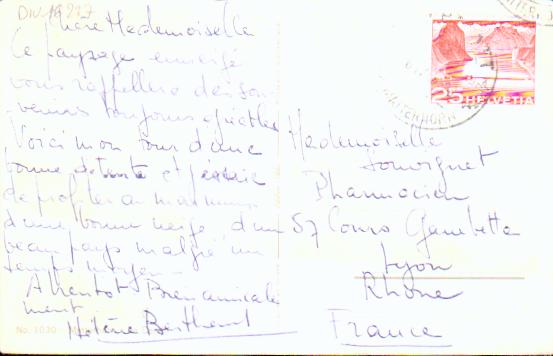 DIV 19217
Chère Mademoiselle
Ce paysage enneigé
vous rappellera des sou
venirs toujours agréables
Voici mon tour d'une
bonne détente et j'essaie
de profiter au maximum
d'une bonne neige d'un
beau pays malgré un
temps moyen
A bientôt Bien amicale
ment
Hélène
No. 1030
25 HELVETIA
Mademoiselle
Pharmacien
57 Cours Gambetta
Lyon
Rhône
France